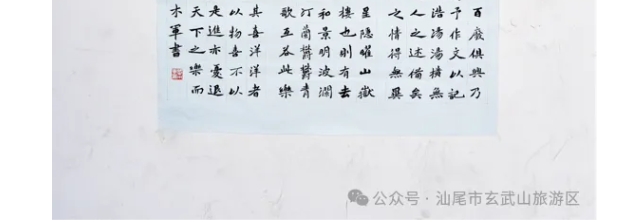 百廢俱興乃
予作文以記
浩湯湯橫無
人之述備矣
之情得無異
星隱曜山嶽
樓也則有去
和景明波瀾
汀蘭鬱鬱青
歌互答此樂
其喜洋洋者
以物喜不以
是進亦憂退
天下之樂而
木軍書
公众号·汕尾市玄武山旅游区